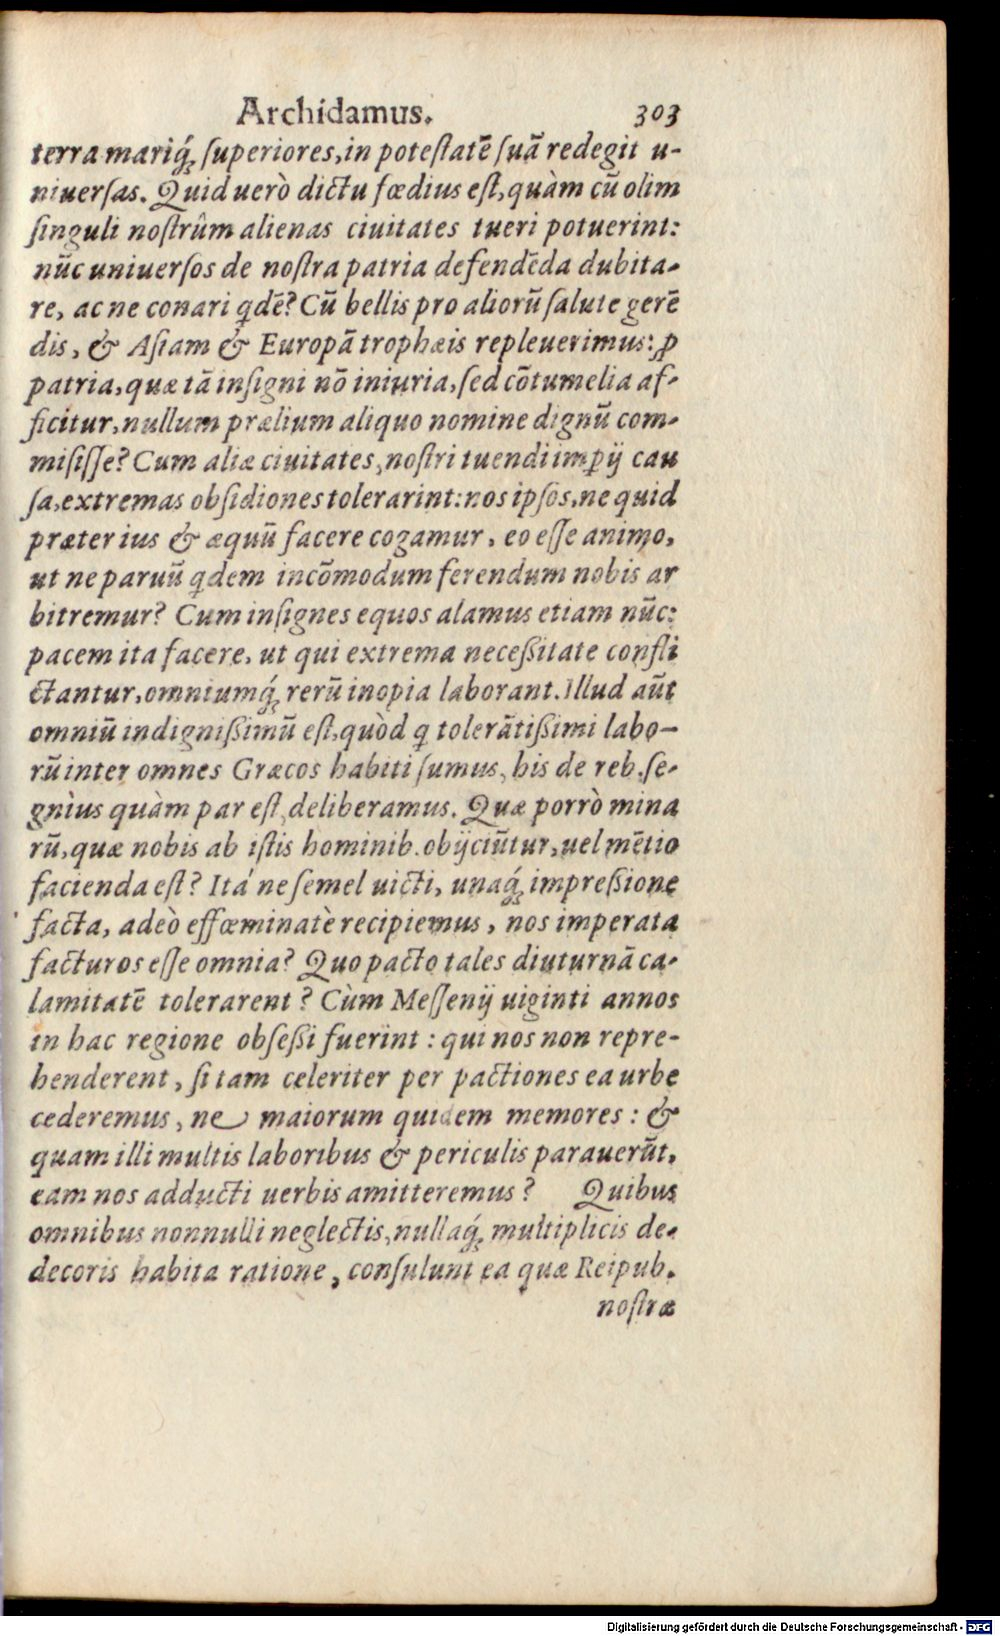 Archidamus. 303
terra mariq́; ſuperiores, in poteſtatē ſuā redegit u-
niuerſas. Quid uerò dictu fœdius eſt, quàm cū olim
ſinguli noſtrûm alienas ciuitates tueri potuerint:
nūc uniuerſos de noſtra patria defendēda dubita-
re, ac ne conari q̃dē? Cū bellis pro aliorū ſalute gerē
dis, & Aſiam & Europā trophæis repleuerimus: ꝓ
patria, quæ tā inſigni nō iniuria, ſed cōtumelia af-
ficitur, nullum prælium aliquo nomine dignū com-
miſiſſe? Cum aliæ ciuitates, noſtri tuendi imꝑij cau
ſa, extremas obſidiones tolerarint: nos ipſos, ne quid
præter ius & æquū facere cogamur, eo eſſe animo,
ut ne paruū q̃dem incōmodum ferendum nobis ar
bitremur? Cum inſignes equos alamus etiam nūc:
pacem ita facere, ut qui extrema neceßitate confli
ctantur, omniumq́; rerū inopia laborant. Illud aūt
omniū indignißimū eſt, quòd q̃ tolerātißimi labo-
rū inter omnes Græcos habiti ſumus, his de reb. ſe-
gnìus quàm par eſt, deliberamus. Quæ porrò mina
rū, quæ nobis ab iſtis hominib. obijciūtur, uel mētio
facienda eſt? Itá ne ſemel uicti, unaq́; impreßione
facta, adeò effœminatè recipiemus, nos imperata
facturos eſſe omnia? Quo pacto tales diuturnā ca-
lamitatē tolerarent? Cùm Meſſenij uiginti annos
in hac regione obſeßi fuerint: qui nos non repre-
henderent, ſi tam celeriter per pactiones ea urbe
cederemus, ne maiorum quidem memores: &
quam illi multis laboribus & periculis parauerūt,
eam nos adducti uerbis amitteremus? Quibus
omnibus nonnulli neglectis, nullaq́; multiplicis de-
decoris habita ratione, conſulunt ea quæ Reipub.
noſtræ
Digitalisierung gefördert durch die Deutsche Forschungsgemeinschaft - DFG